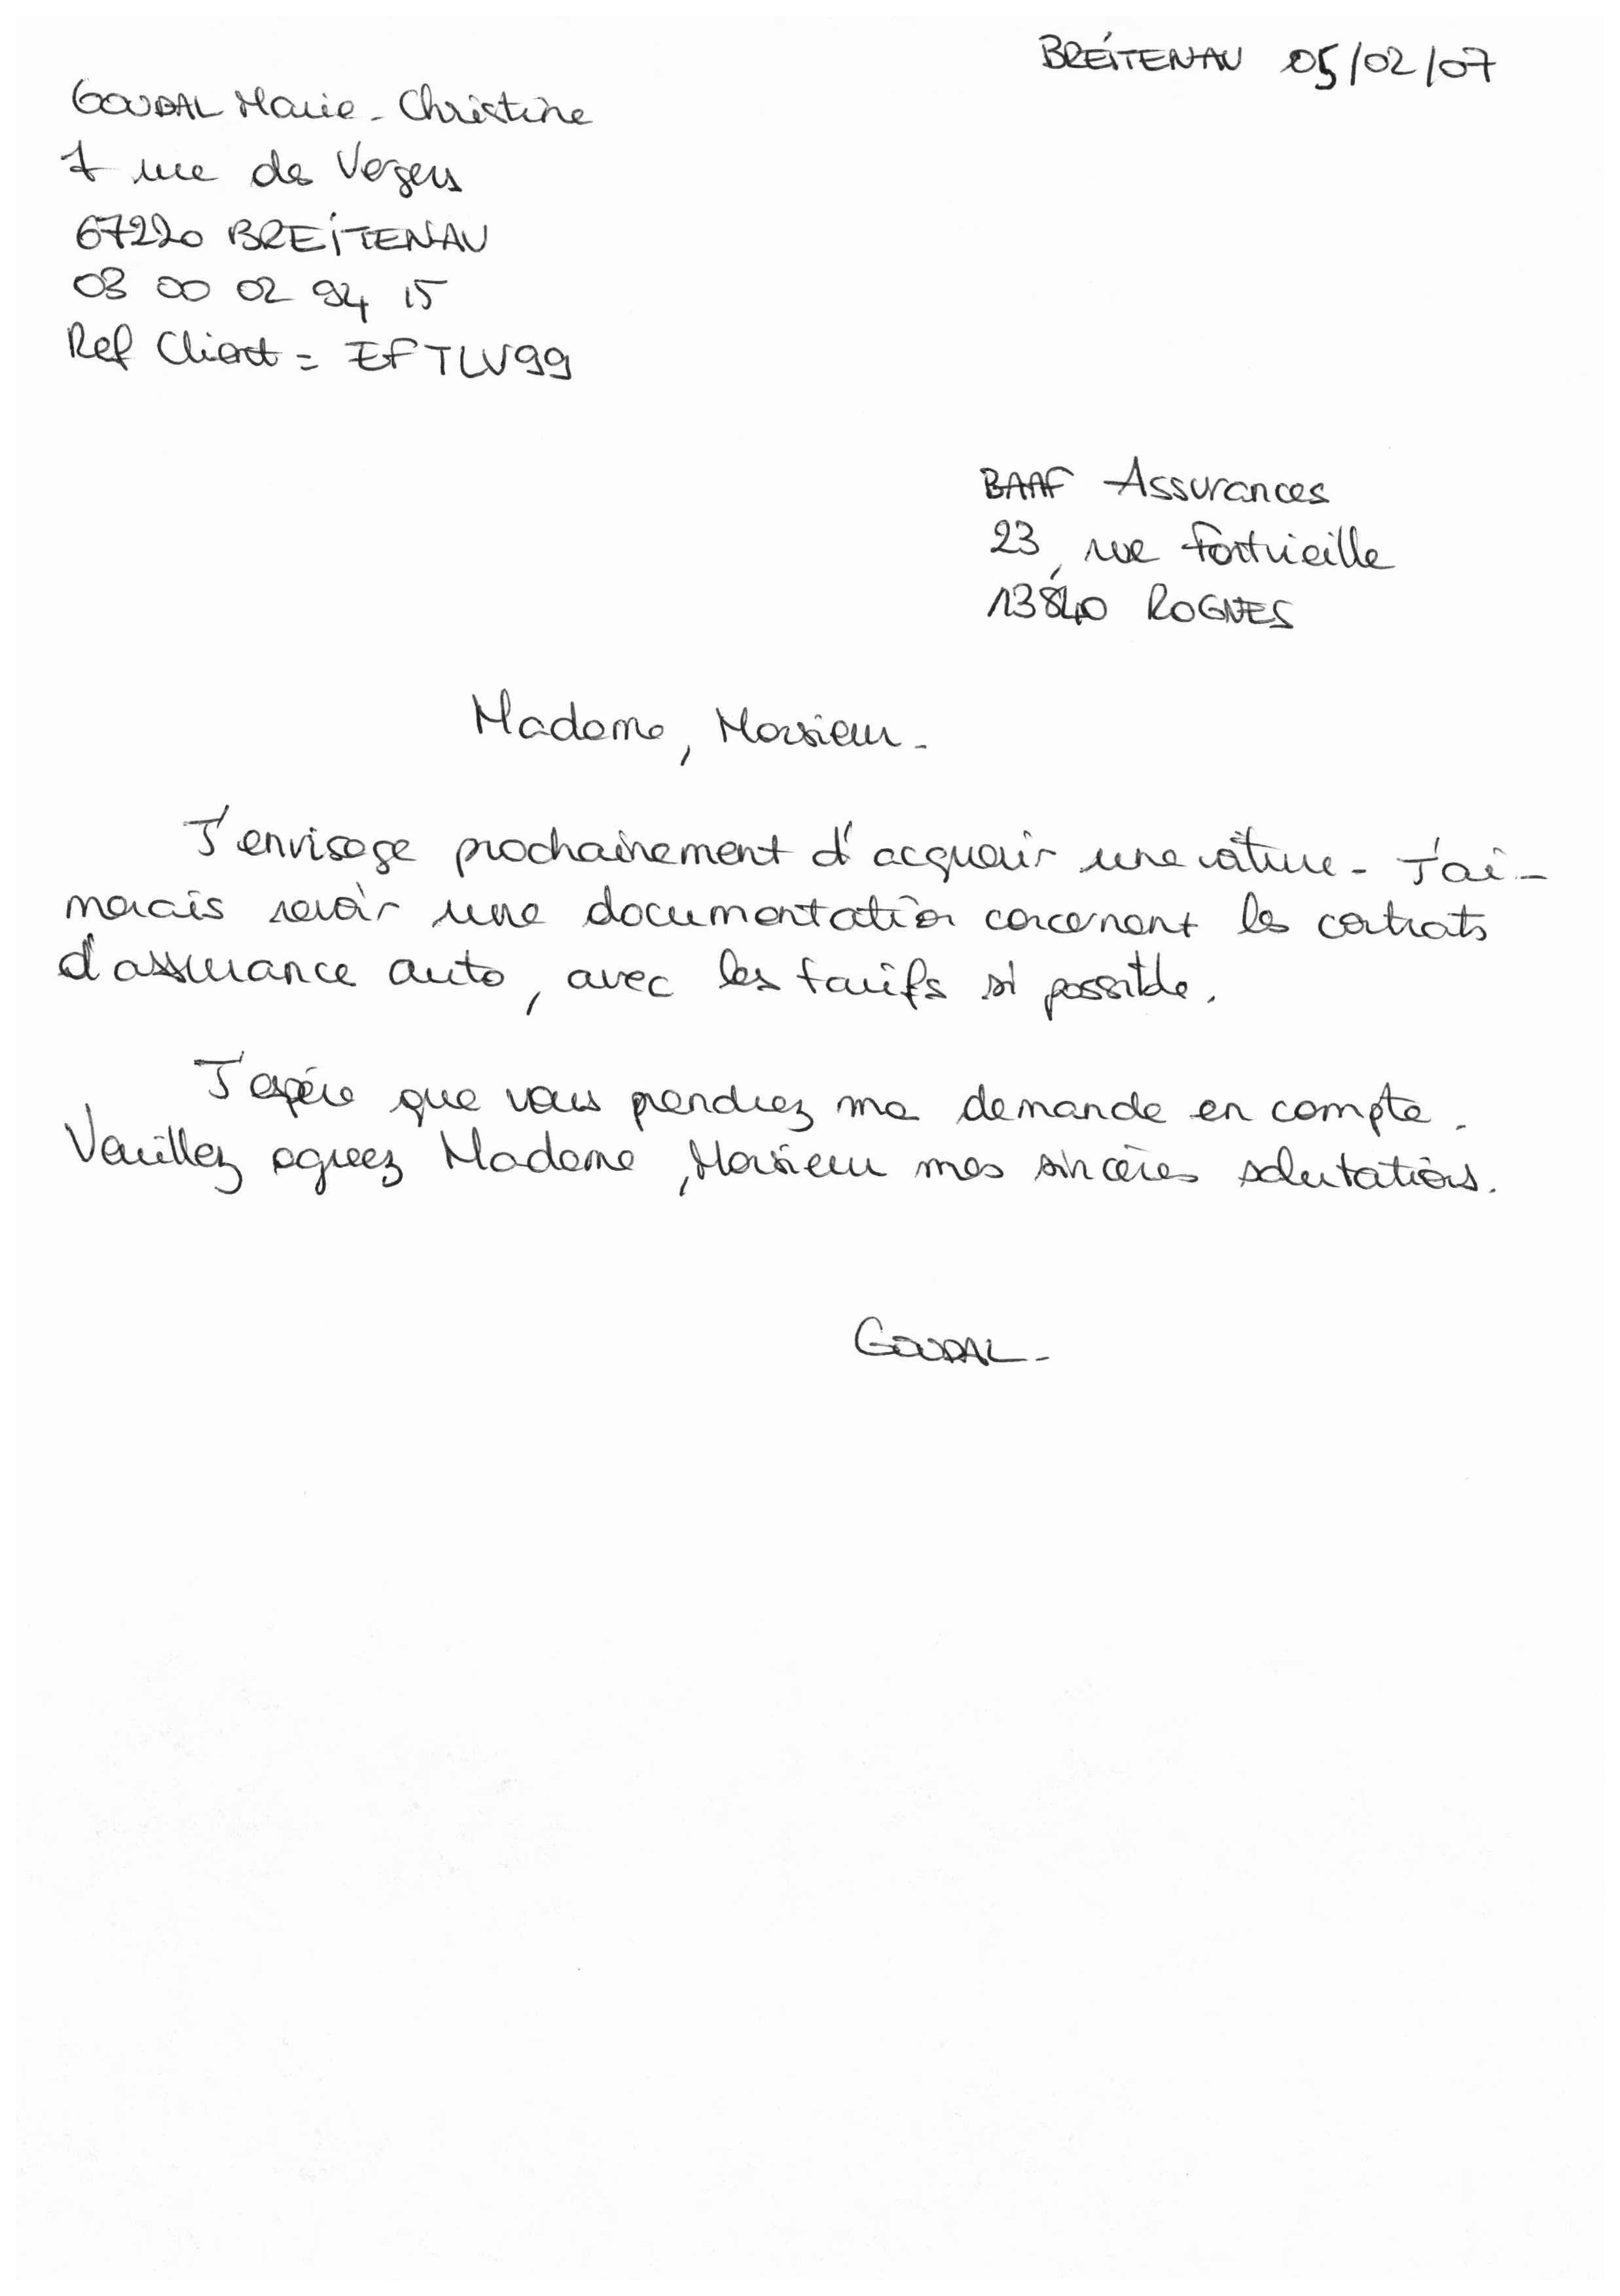 BREITENAU 05/02/07
GOUDAL Marie-Christine
7 rue des Vergers
67220 BREITENAU
03 00 02 94 15
Ref Client = EFTLV99
BAAF Assurances
23, rue Fontvieille
13840 ROGNES
Madame, Monsieur.
J'envisage prochainement d'acquérir une voiture. J'ai-
merais revoir une documentation concernant les contrats
d'assurance auto, avec les tarifs si possible.
J'espère que vous prendrez ma demande en compte.
Veuillez agréez Madame, Monsieur mes sincères salutations.
GOUDAL.